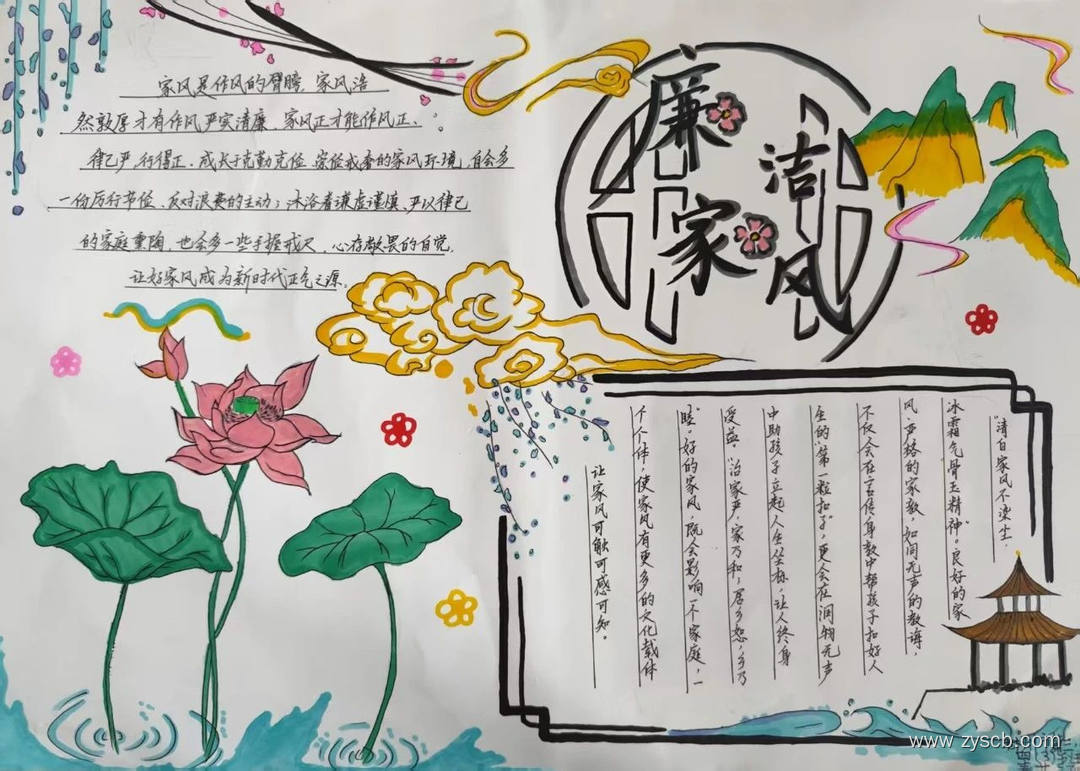 廉洁家风
家风是作风的臂膀，家风浩
然敦厚才有作风严实清廉、家风正才能作风正、
律己严，行得正。成长于克勤克俭、崇俭戒奢的家风环境，自会多
一份厉行节俭、反对浪费的主动；沐浴着谦虚谨慎、严以律己
的家庭熏陶，也会多一些手握戒尺、心存敬畏的自觉，
让好家风成为新时代正气之源。
“清白家风不染尘，
冰霜气骨玉精神”。良好的家
风，严格的家教，如同无声的教诲，
不仅会在言传身教中帮孩子扣好人
生的“第一粒扣子”，更会在润物无声
中助孩子立起人生坐标，让人终身
受益。“治家严，家乃和；居乡恕，乡乃
睦”。好的家风，既会影响一个家庭，一
个个体，使家风有更多的文化载体
让家风可触可感可知。
www.zyscb.com